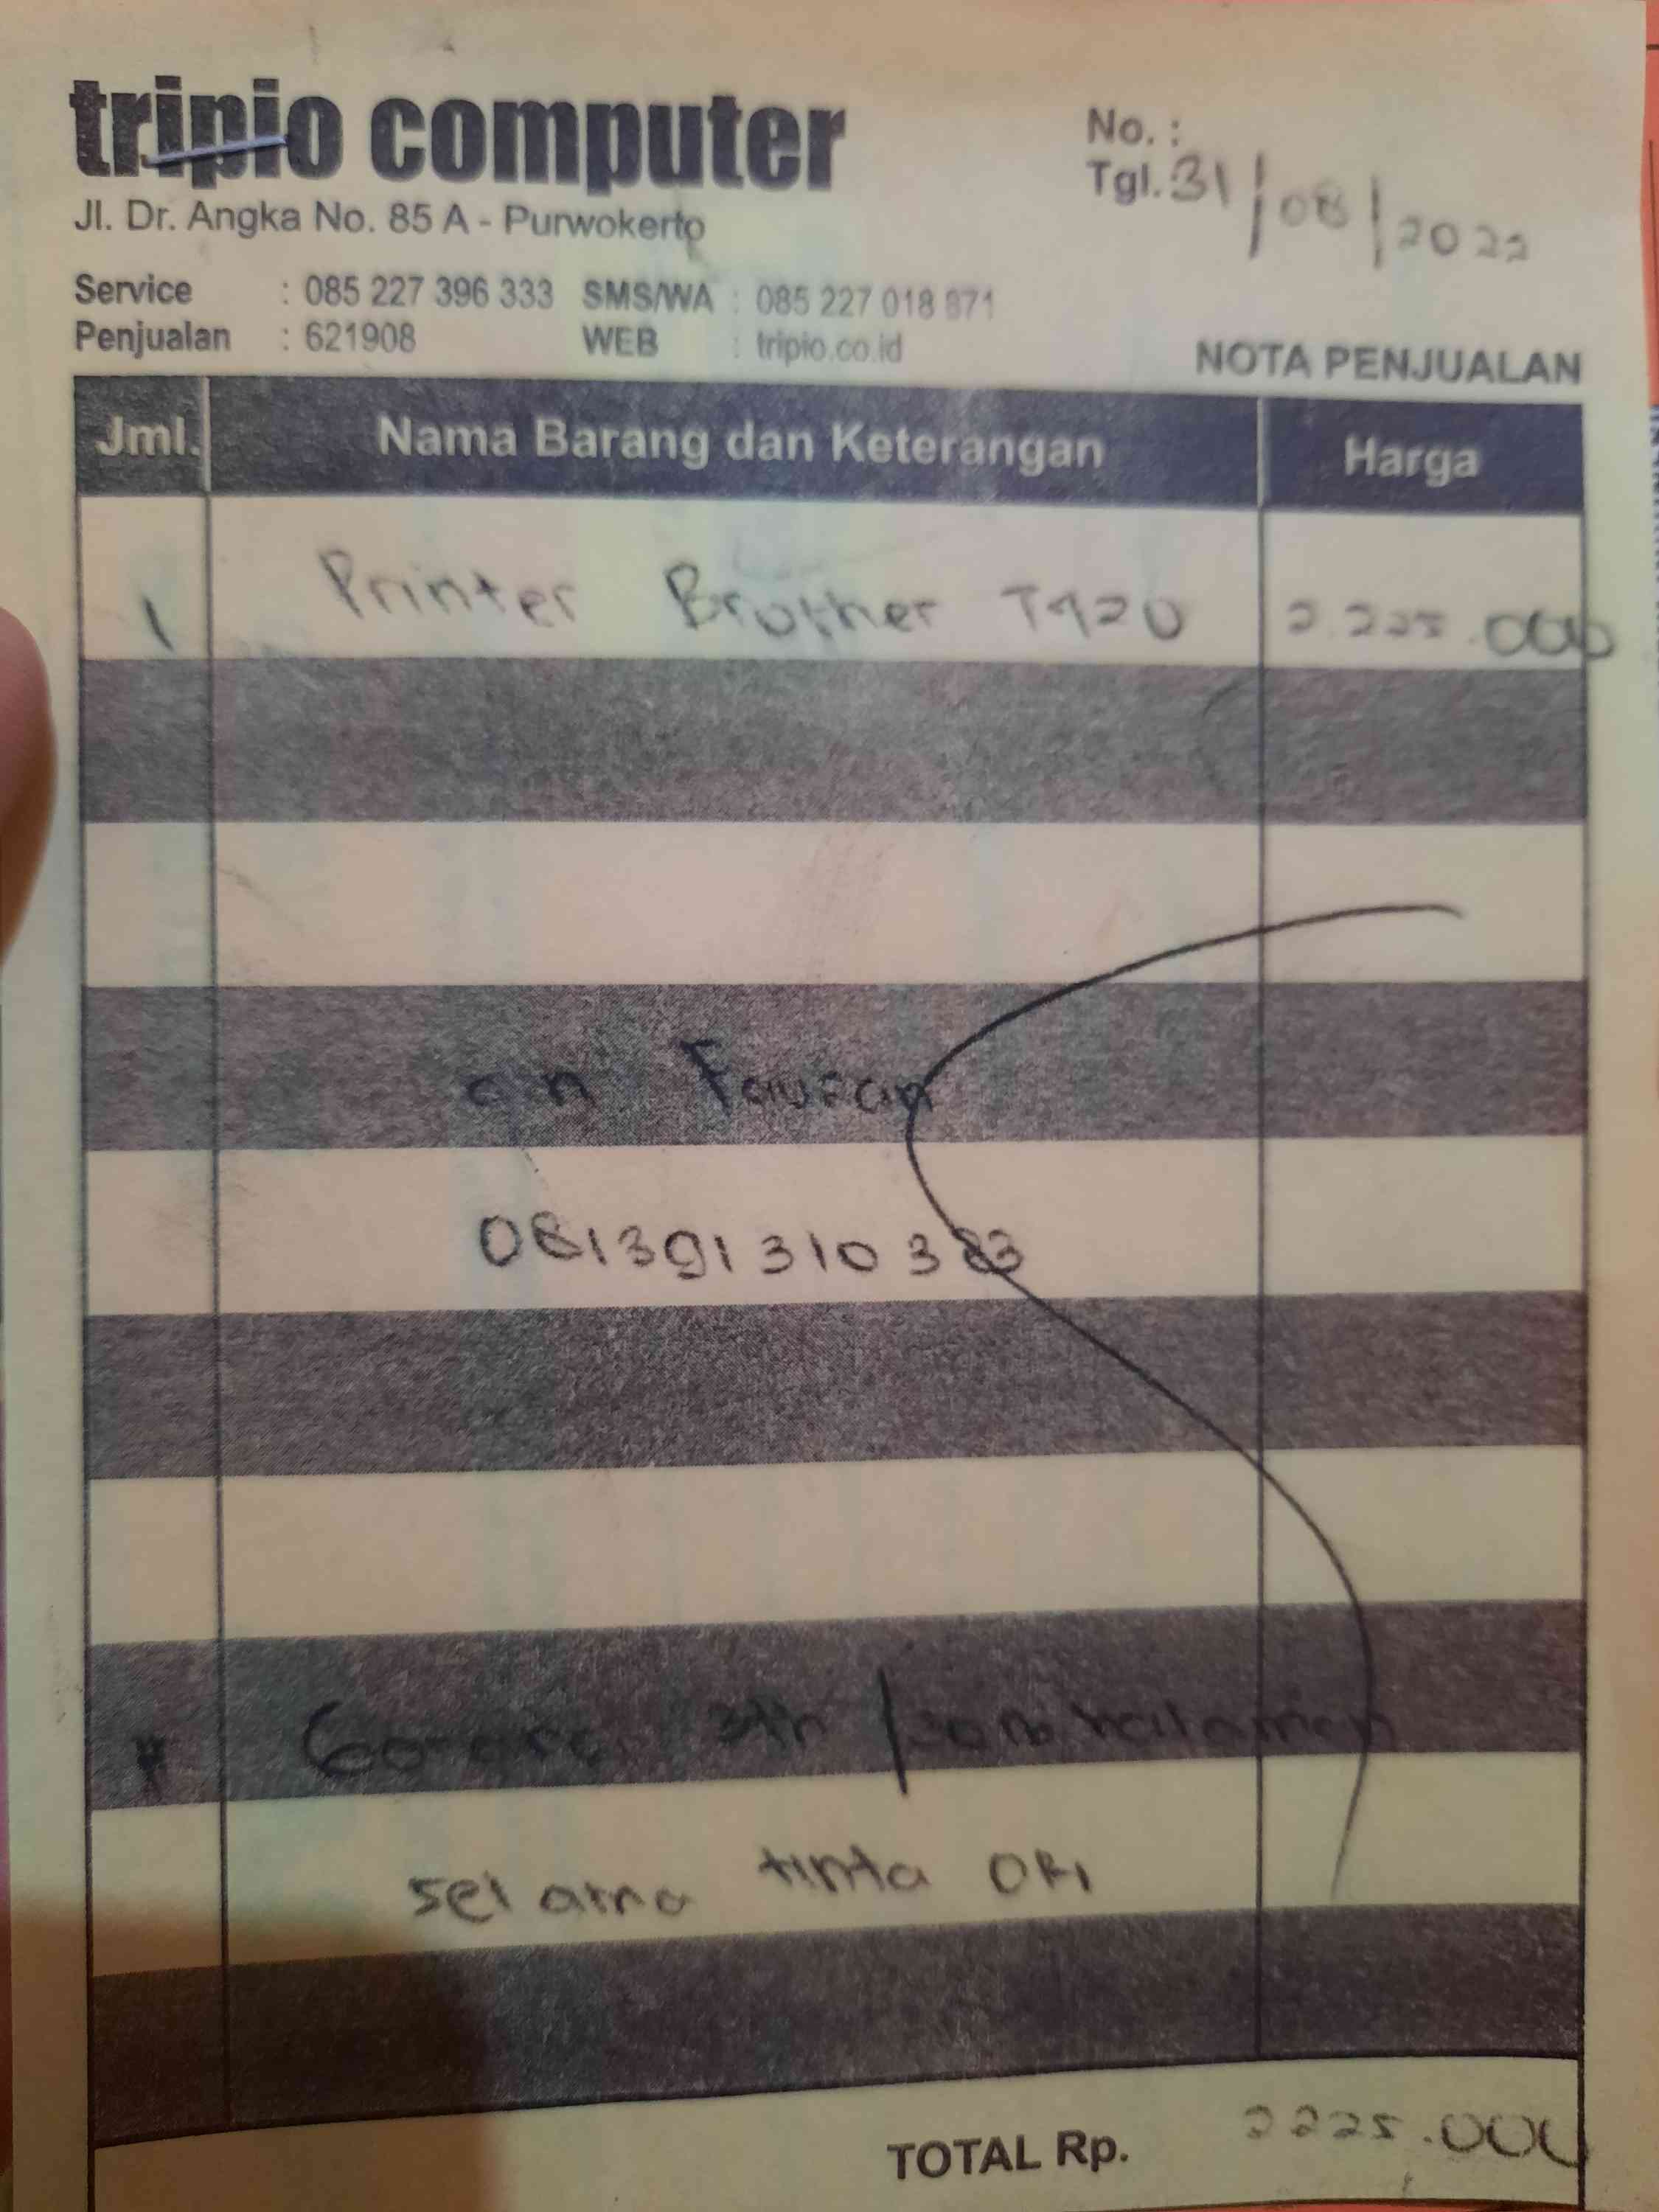 tripio computer
Jl. Dr. Angka No. 85 A - Purwokerto
No. :
Tgl. 31/08/2022
Service : 085 227 396 333 SMS/WA : 085 227 018 871
Penjualan : 621908 WEB : tripio.co.id
NOTA PENJUALAN
Jml. Nama Barang dan Keterangan Harga
1 Printer Brother T420 2.225.000
an Fauzan
081391310383
* Garansi 3th / halaman
selama tinta ORI
TOTAL Rp. 2225.000